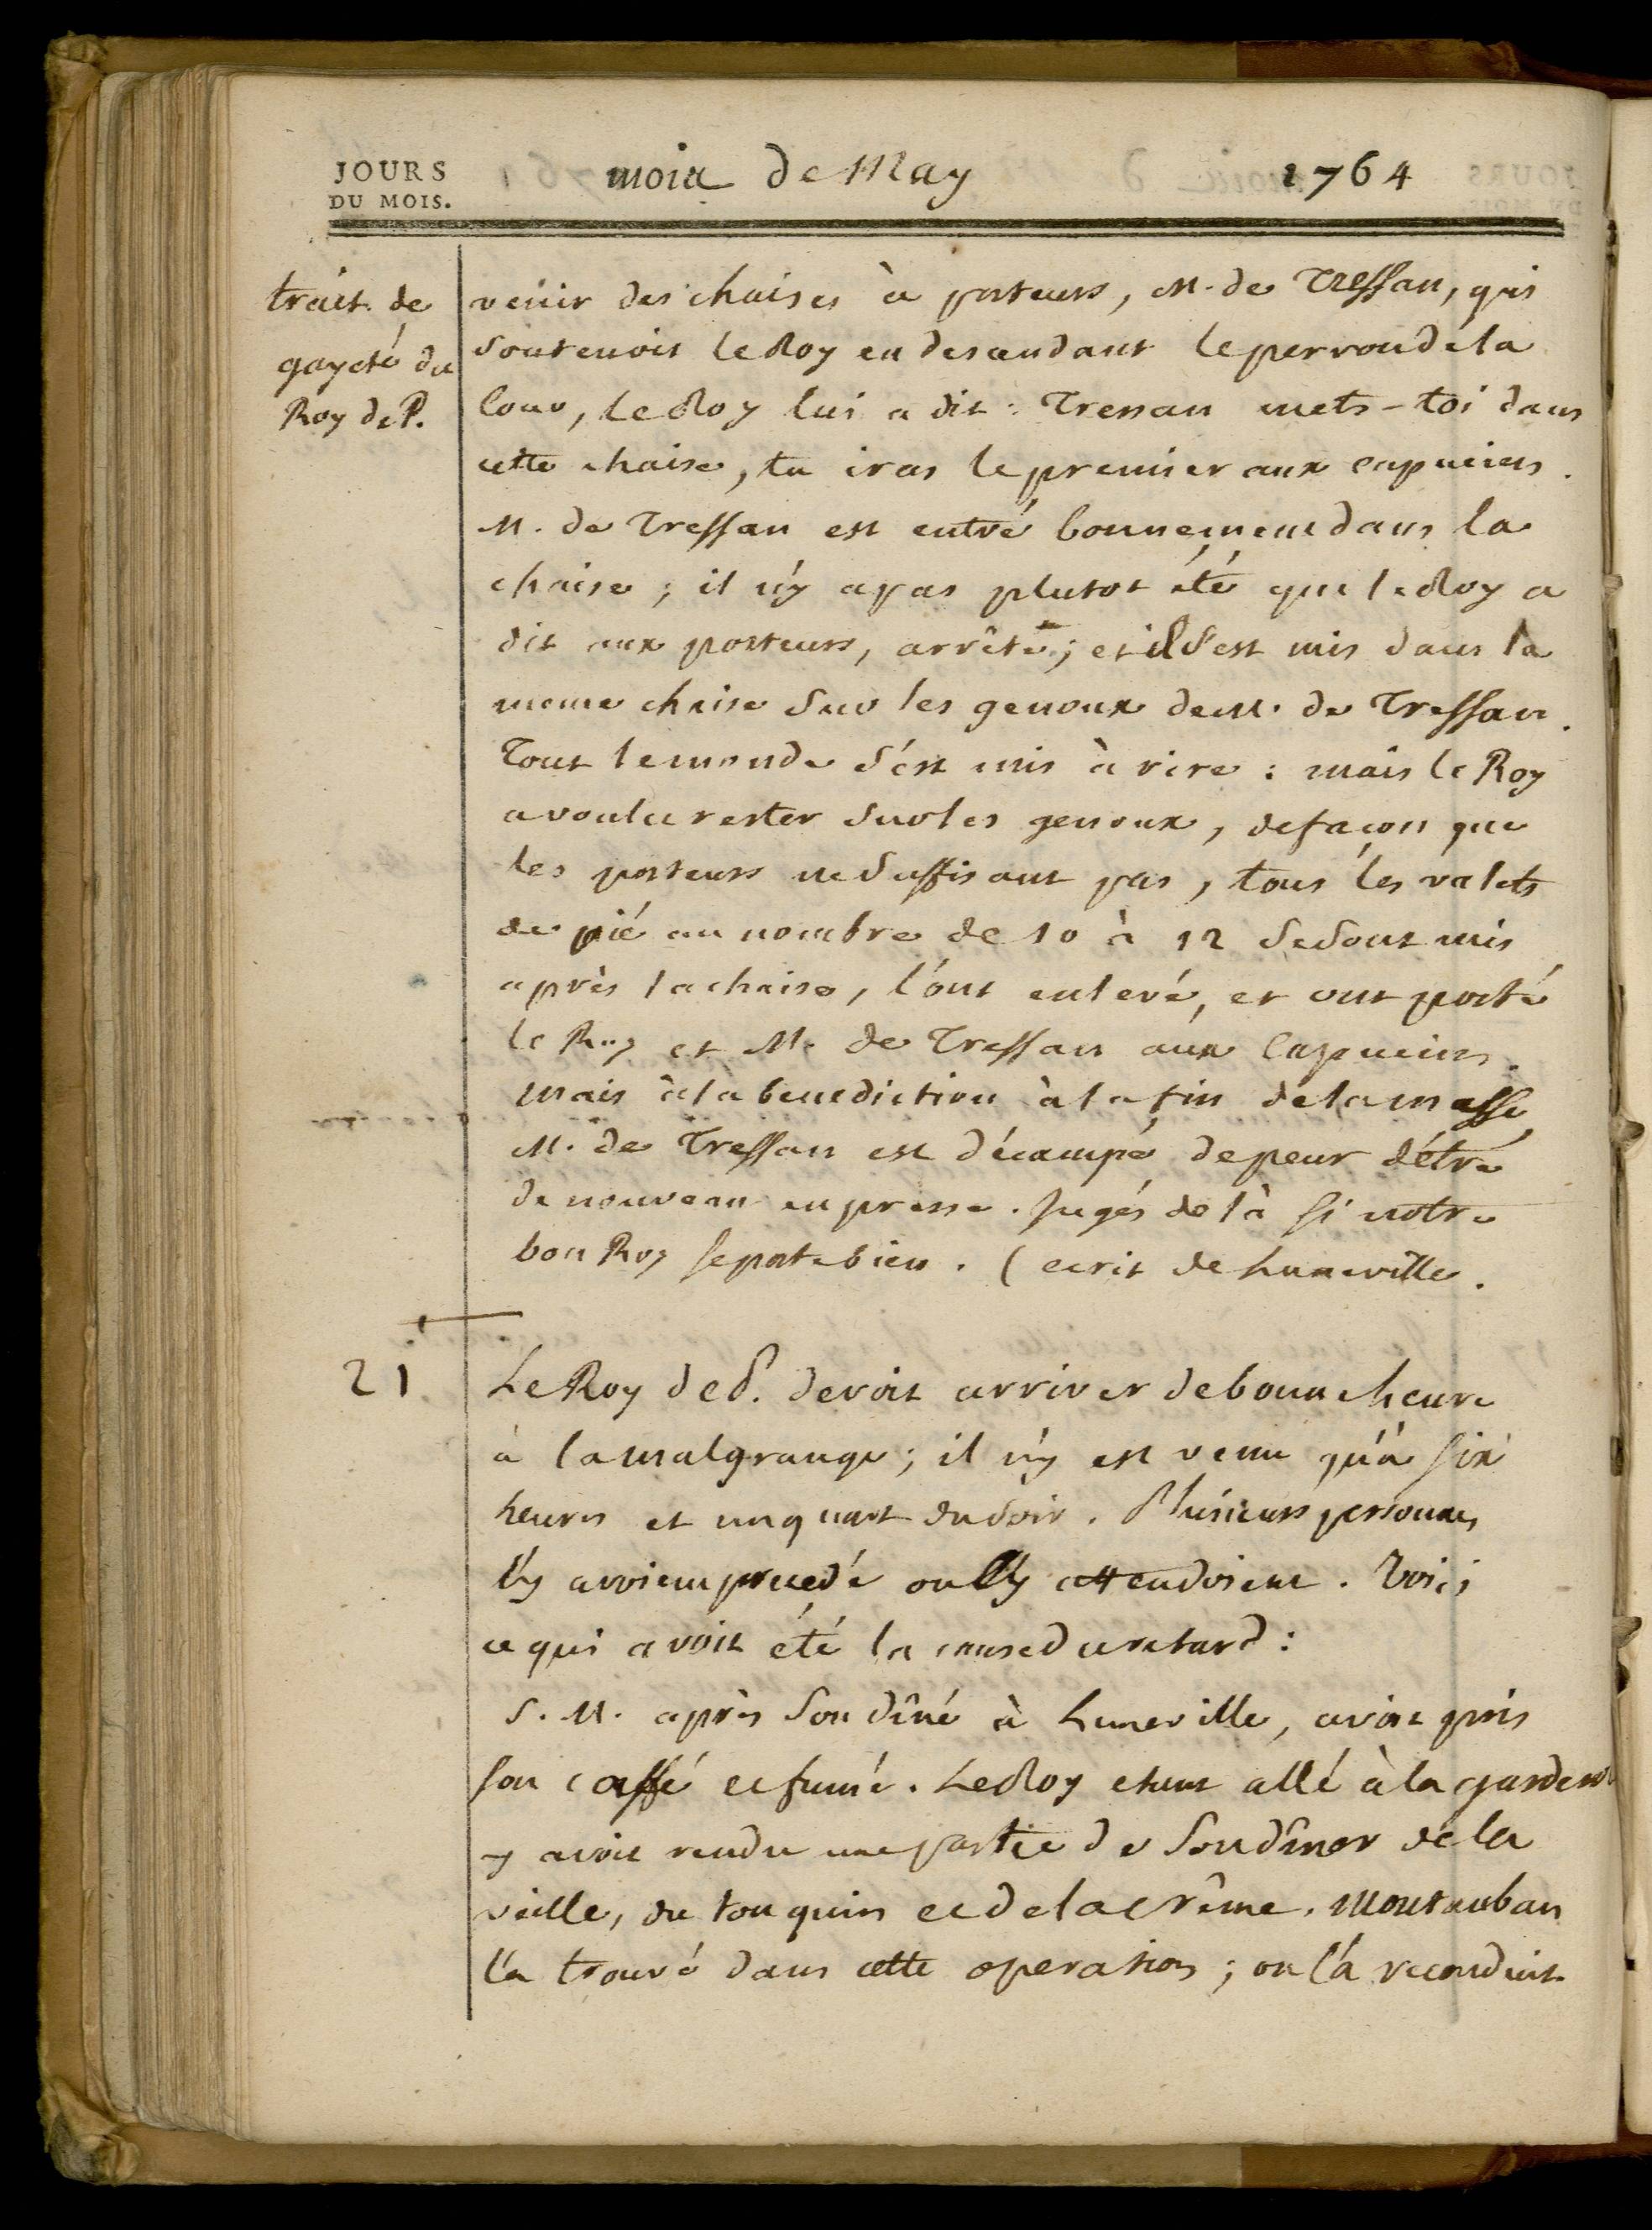 JOURS
DU MOIS.
mois de May 1764
trait de
gayeté du
Roy de P.
venir des chaises à porteurs, M. de Tressan, qui
soutenoit le Roy en descendant le perron de la
Cour, le Roy lui a dit : Tressan mets-toi dans
cette chaise, tu iras le premier aux capucins.
M. de Tressan est entré bonnement dans la
chaise ; il n'y a pas plutot été que le Roy a
dit aux porteurs, arrête ; et il s'est mis dans la
meme chaise sur les genoux de M. de Tressan.
Tout le monde s'est mis à rire : mais le Roy
a voulu rester sur les genoux, de façon que
les porteurs ne suffisant pas, tous les valets
de pié au nombre de 10 à 12 se sont mis
après la chaise, l'ont enlevé, et ont porté
le Roy et M. de Tressan aux Capucins.
mais à la benediction à la fin de la messe
M. de Tressan est décampé de peur d'être
de nouveau en presse. Jugés de là si notre
bon Roy se porte bien. ( ecrit de Luneville.
21
Le Roy de P. devoit arriver de bonne heure
à la malgrange ; il n'y est venu qu'à six
heures et un quart du soir. Plusieurs personnes
l'y avoient precedé ou l'y attendoient. Voici
ce qui avoit été la cause du retard :
S. M. après son dîné à Luneville, avoit pris
son caffé et fumé. Le Roy etant allé à la garderob
y avoit rendu une partie de son dîner de la
veille, du tonquin et de la crême. Montauban
l'a trouvé dans cette operation ; on l'a reconduit